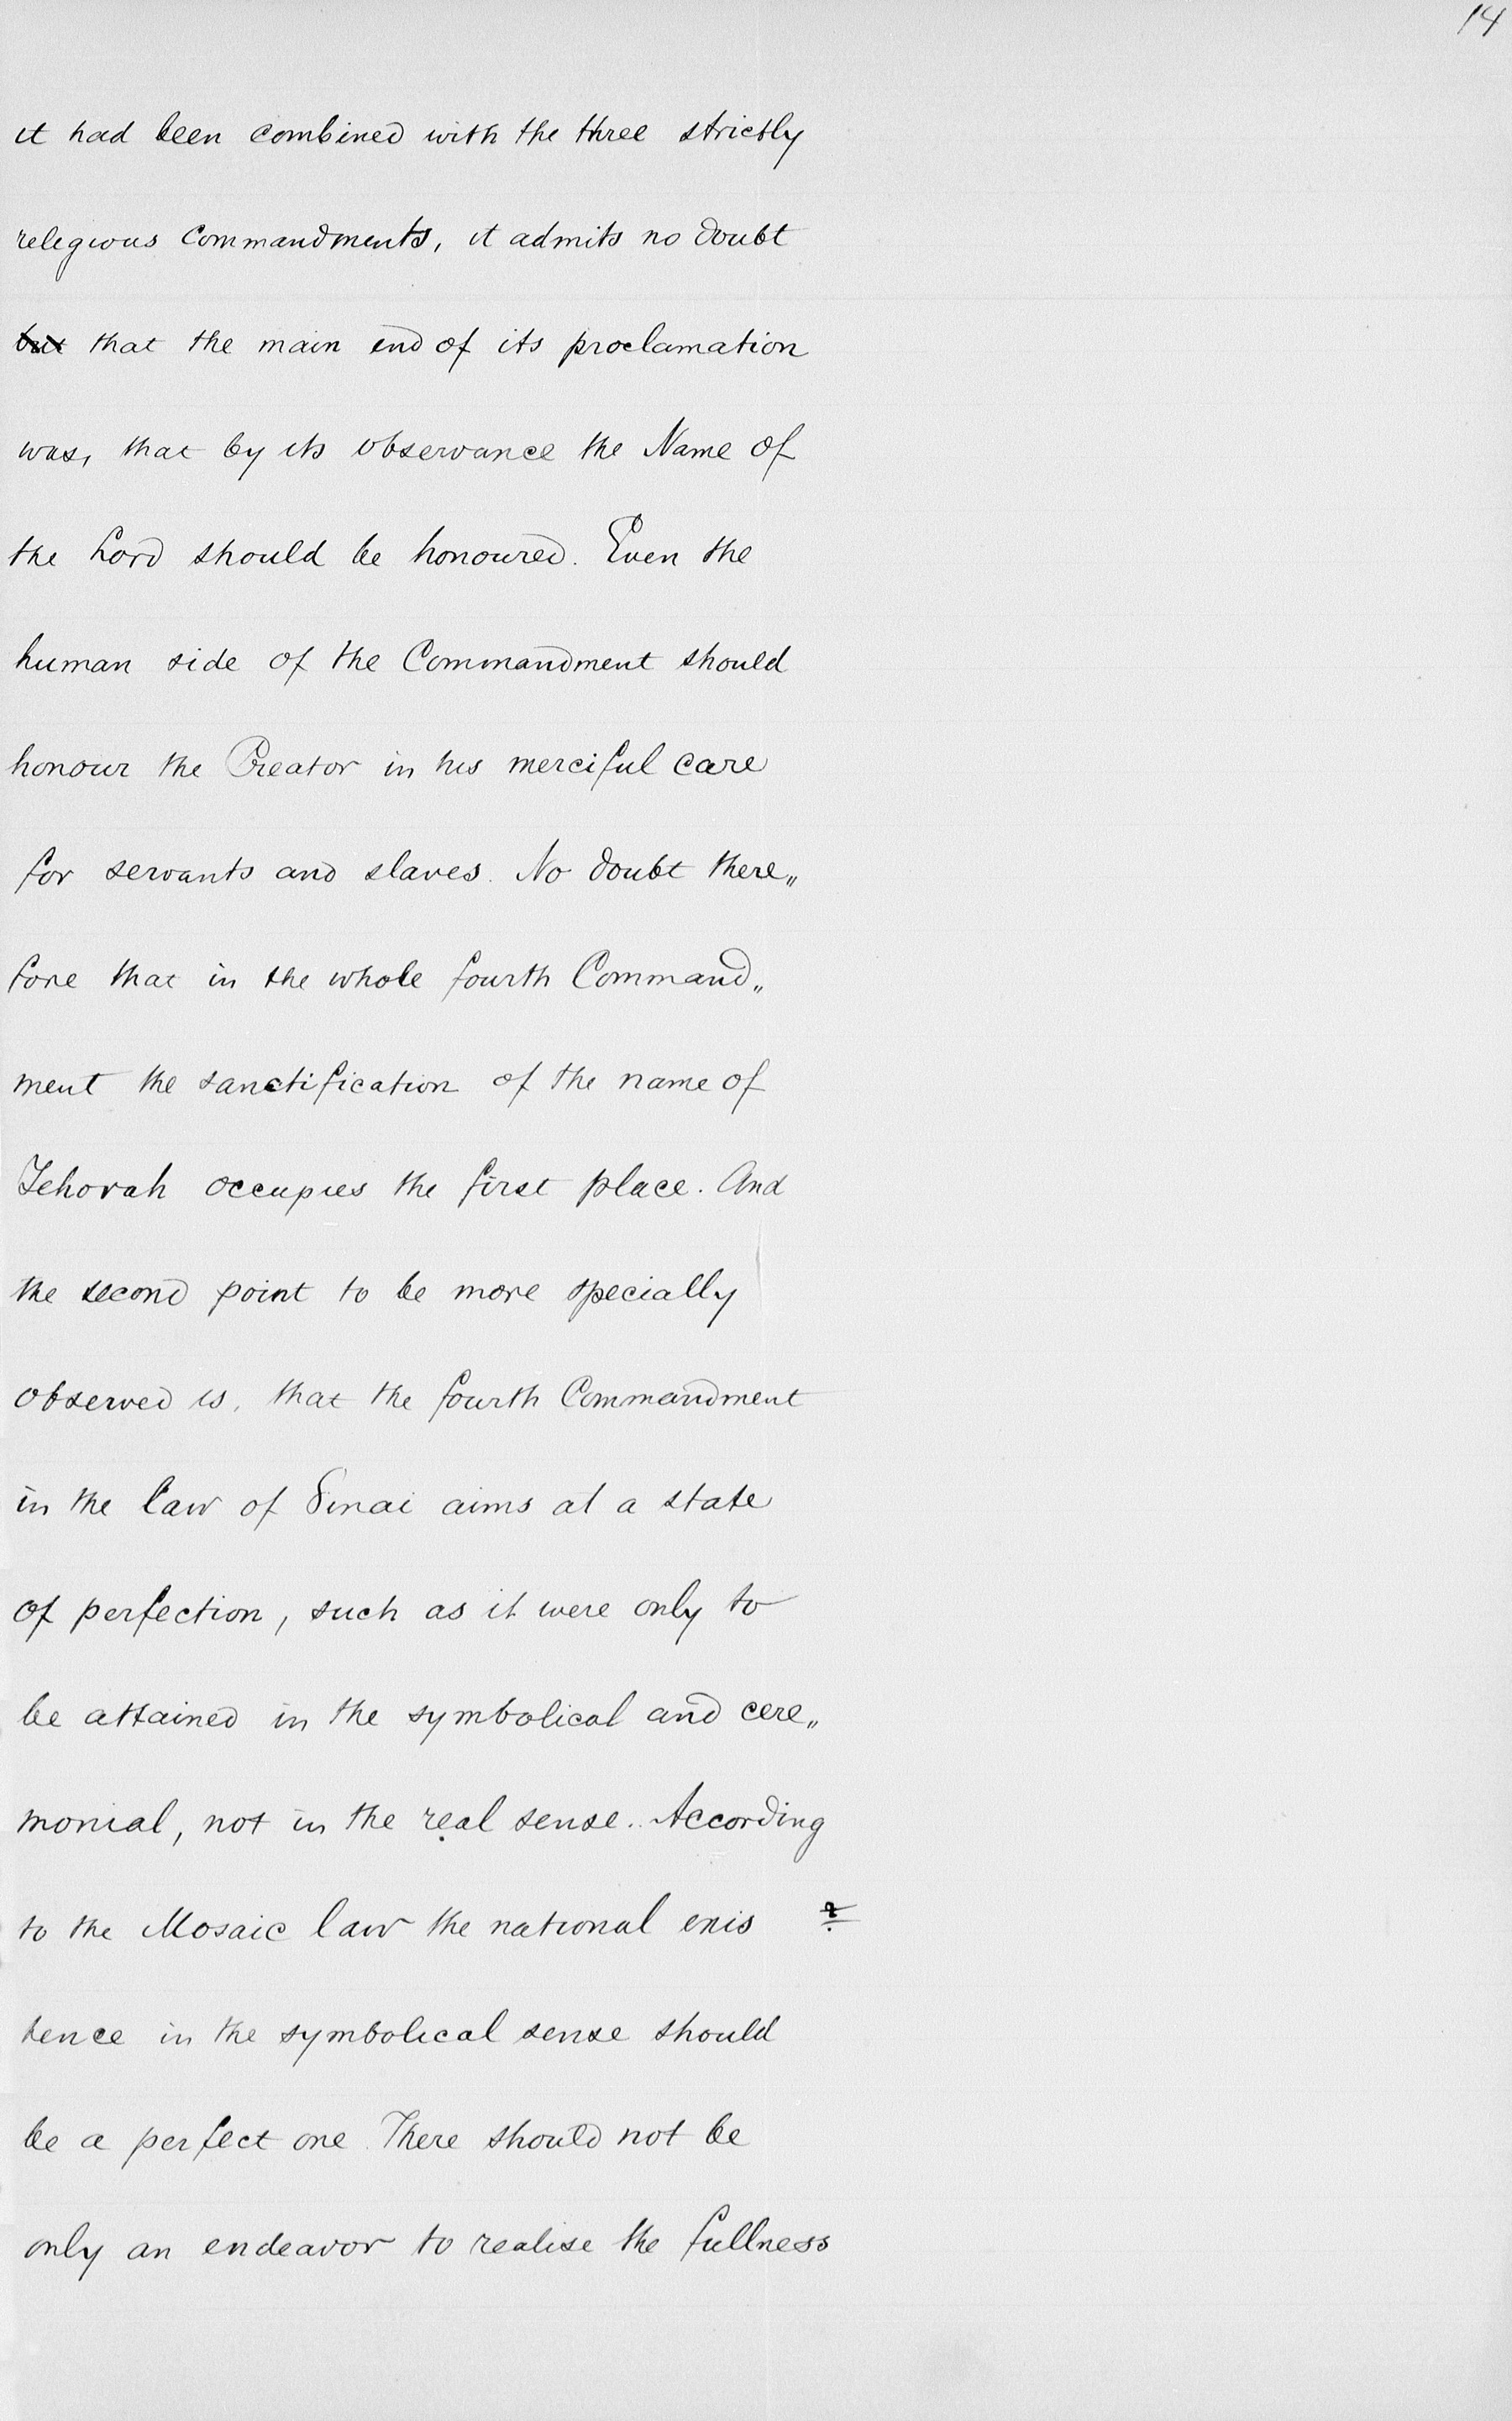 14
it had been combined with the three strictly
relegious Commandments, it admits no doubt
but that the main end of its proclamation
was, that by its observance the Name of
the Lord should be honoured. Even the
human side of the Commandment should
honour the Creator in his merciful care
for servants and slaves. No doubt there„
fore that in the whole fourth Command„
ment the sanctification of the name of
Jehovah occupies the first place. And
the second point to be more specially
observed is, that the fourth Commandment
in the law of Sinai aims at a state
of perfection, such as it were only to
be attained in the symbolical and cere„
monial, not in the real sense. According
to the Mosaic law the national exis
tence in the symbolical sense should
be a perfect one. There should not be
only an endeavor to realise the fullness